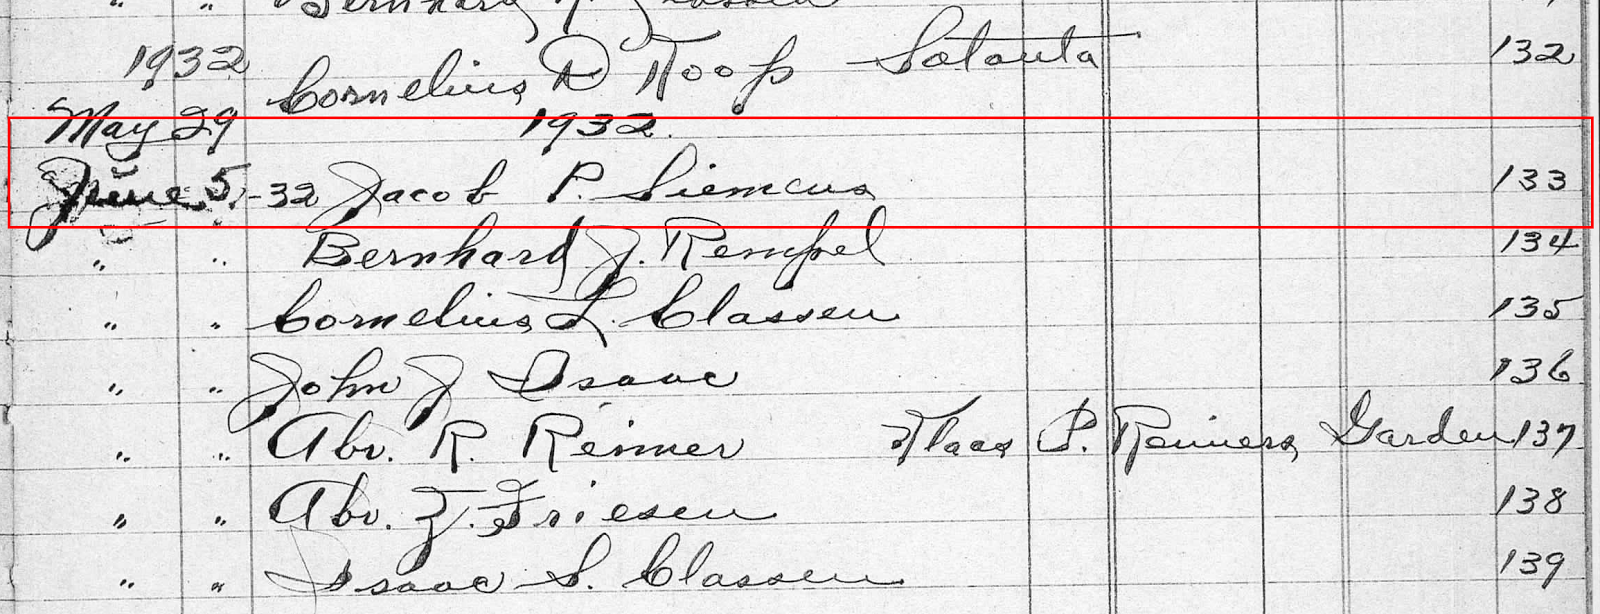 " " Bernhard
1932 Cornelius D Koop Satanta 132
May 29 1932.
June 5, -32 Jacob P. Siemens 133
" " Bernhard J. Rempel 134
" " Cornelius L. Classen 135
" " John J Isaac 136
" " Abr. R. Reimer Klaas P. Reimers, Garden 137
" " Abr. Z. Friesen 138
" " Isaac S. Classen 139